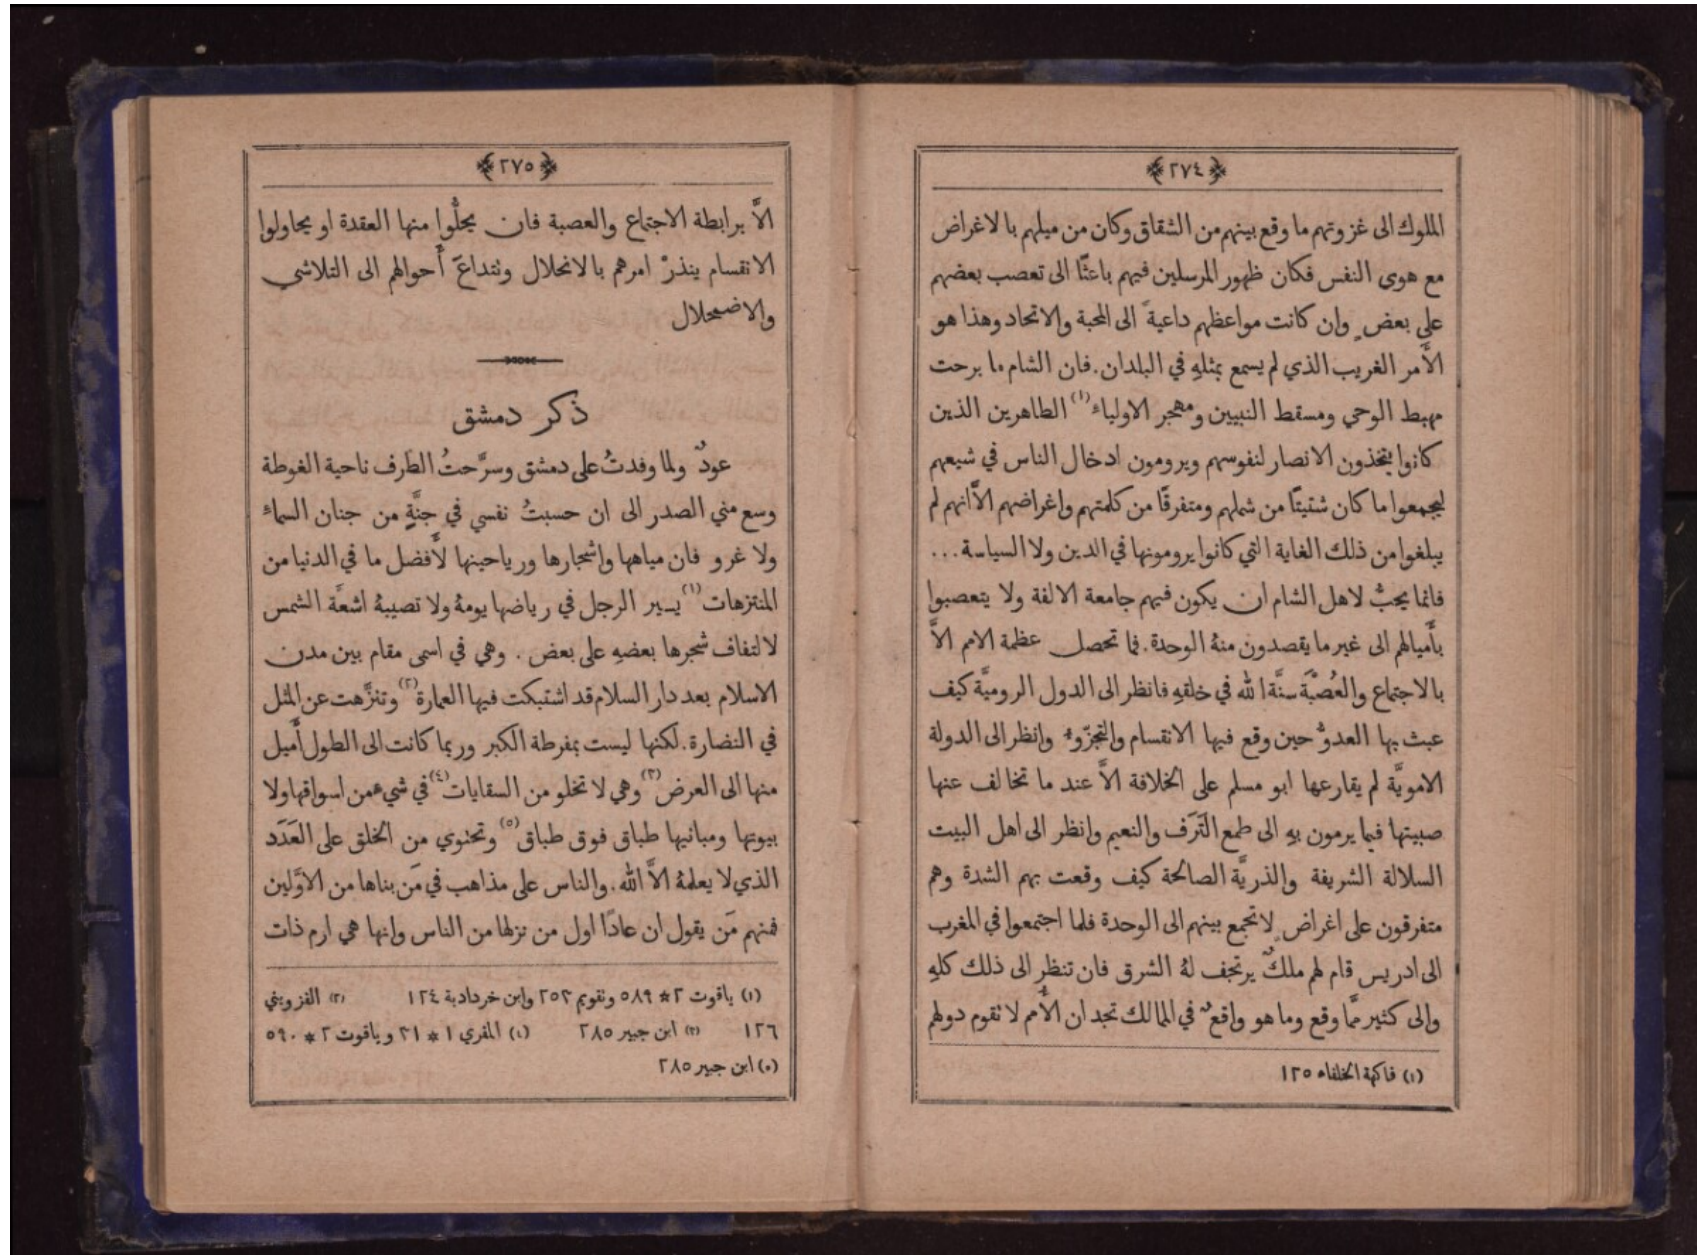 ﴿٢٧٤﴾
الملوك الى غزوتهم ما وقع بينهم من الشقاق وكان من ميلهم بالاغراض
مع هوى النفس فكان ظهور المرسلين فيهم باعثًا الى تعصب بعضهم
على بعضٍ وان كانت مواعظهم داعيةً الى المحبة والاتحاد وهذا هو
الأَمر الغريب الذي لم يسمع بمثلهِ في البلدان. فان الشام ما برحت
مهبط الوحي ومسقط النبيين ومهجر الاولياء (١) الطاهرين الذين
كانوا يتخذون الانصار لنفوسهم ويرومون ادخال الناس في شيعهم
ليجمعوا ما كان شتيتًا من شملهم ومتفرقًا من كلمتهم واغراضهم الاَّ انهم لم
يبلغوا من ذلك الغاية التي كانوا يرومونها في الدين ولا السياسة ...
فانما يجبُ لاهل الشام ان يكون فيهم جامعة الالفة ولا يتعصبوا
بأَميالهم الى غير ما يقصدون منهُ الوحدة. فما تحصل عظمة الامم الاَّ
بالاجتماع والعُصْبَة سنَّة الله في خلقهِ فانظر الى الدول الروميَّة كيف
عبث بها العدوُّ حين وقع فيها الانقسام والتجزّوءُ وانظر الى الدولة
الامويَّة لم يقارعها ابو مسلم على الخلافة الاَّ عند ما تخالف عنها
صبيتها فيما يرمون بهِ الى طمع التَرَف والنعيم وانظر الى اهل البيت
السلالة الشريفة والذريَّة الصالحة كيف وقعت بهم الشدة وهم
متفرقون على اغراضٍ لا تجمع بينهم الى الوحدة فلما اجتمعوا في المغرب
الى ادريس قام لهم ملكٌ يرتجف لهُ الشرق فان تنظر الى ذلك كلهِ
والى كثير ممَّا وقع وما هو واقعٌ في الممالك تجد ان الأُمم لا تقوم دولهم
(١) فاكهة الخلفاء ١٢٥
﴿٢٧٥﴾
الاَّ برابطة الاجتماع والعصبة فان يحلُّوا منها العقدة او يحاولوا
الانقسام ينذرْ امرهم بالانحلال وتتداعَ أَحوالهم الى التلاشي
والاضمحلال
ذكر دمشق
عودٌ ولما وفدتُ على دمشق وسرَّحتُ الطرف ناحية الغوطة
وسع مني الصدر الى ان حسبتُ نفسي في جنَّةٍ من جنان السماء
ولا غرو فان مياهها واشجارها ورياحينها لأَفضل ما في الدنيا من
المنتزهات (١) يسير الرجل في رياضها يومهُ ولا تصيبهُ اشعَّة الشمس
لالتفاف شجرها بعضهِ على بعض . وهي في اسمى مقام بين مدن
الاسلام بعد دار السلام قد اشتبكت فيها العمارة (٢) وتنزَّهت عن المثل
في النضارة. لكنها ليست بمفرطة الكبر وربما كانت الى الطول أَميل
منها الى العرض (٣) وهي لا تخلو من السقايات (٤) في شيءٍ من اسواقها ولا
بيوتها ومبانيها طباق فوق طباق (٥) وتحتوي من الخلق على العَدَد
الذي لا يعلمهُ الاَّ الله. والناس على مذاهب في مَن بناها من الاوَّلين
فمنهم مَن يقول ان عادًا اول من نزلها من الناس وانها هي ارم ذات
(١) ياقوت ٢ * ٥٨٩ وتقويم ٢٥٢ وابن خرداذبة ١٢٤ (٢) القزويني
١٢٦ (٣) ابن جبير ٢٨٥ (٤) المقري ١ * ٣١ وياقوت ٢ * ٥٩٠
(٥) ابن جبير ٢٨٥